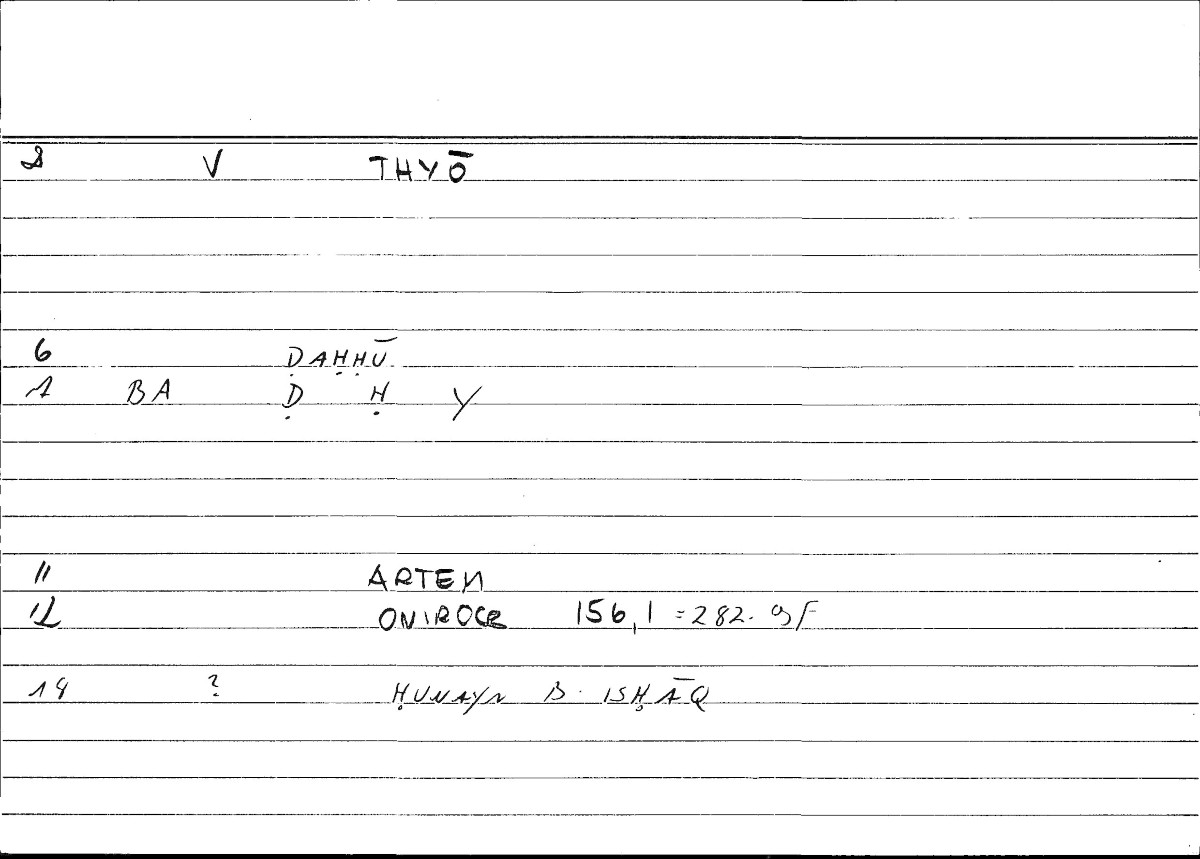 8 V THYŌ
6 ḌAḤḤŪ
1 BA Ḍ Ḥ Y
11 ARTEM
12 ONIROCR 156,1 = 282. 9f
14 ? ḤUNAYN B. ISḤĀQ